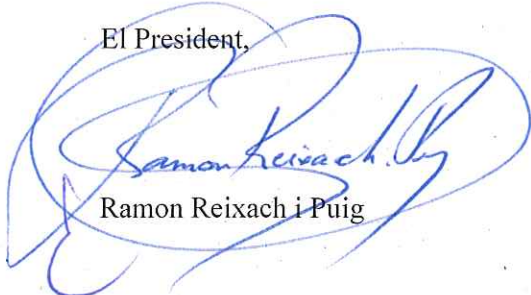 El President,
Ramon Reixach. Puig
Ramon Reixach i Puig